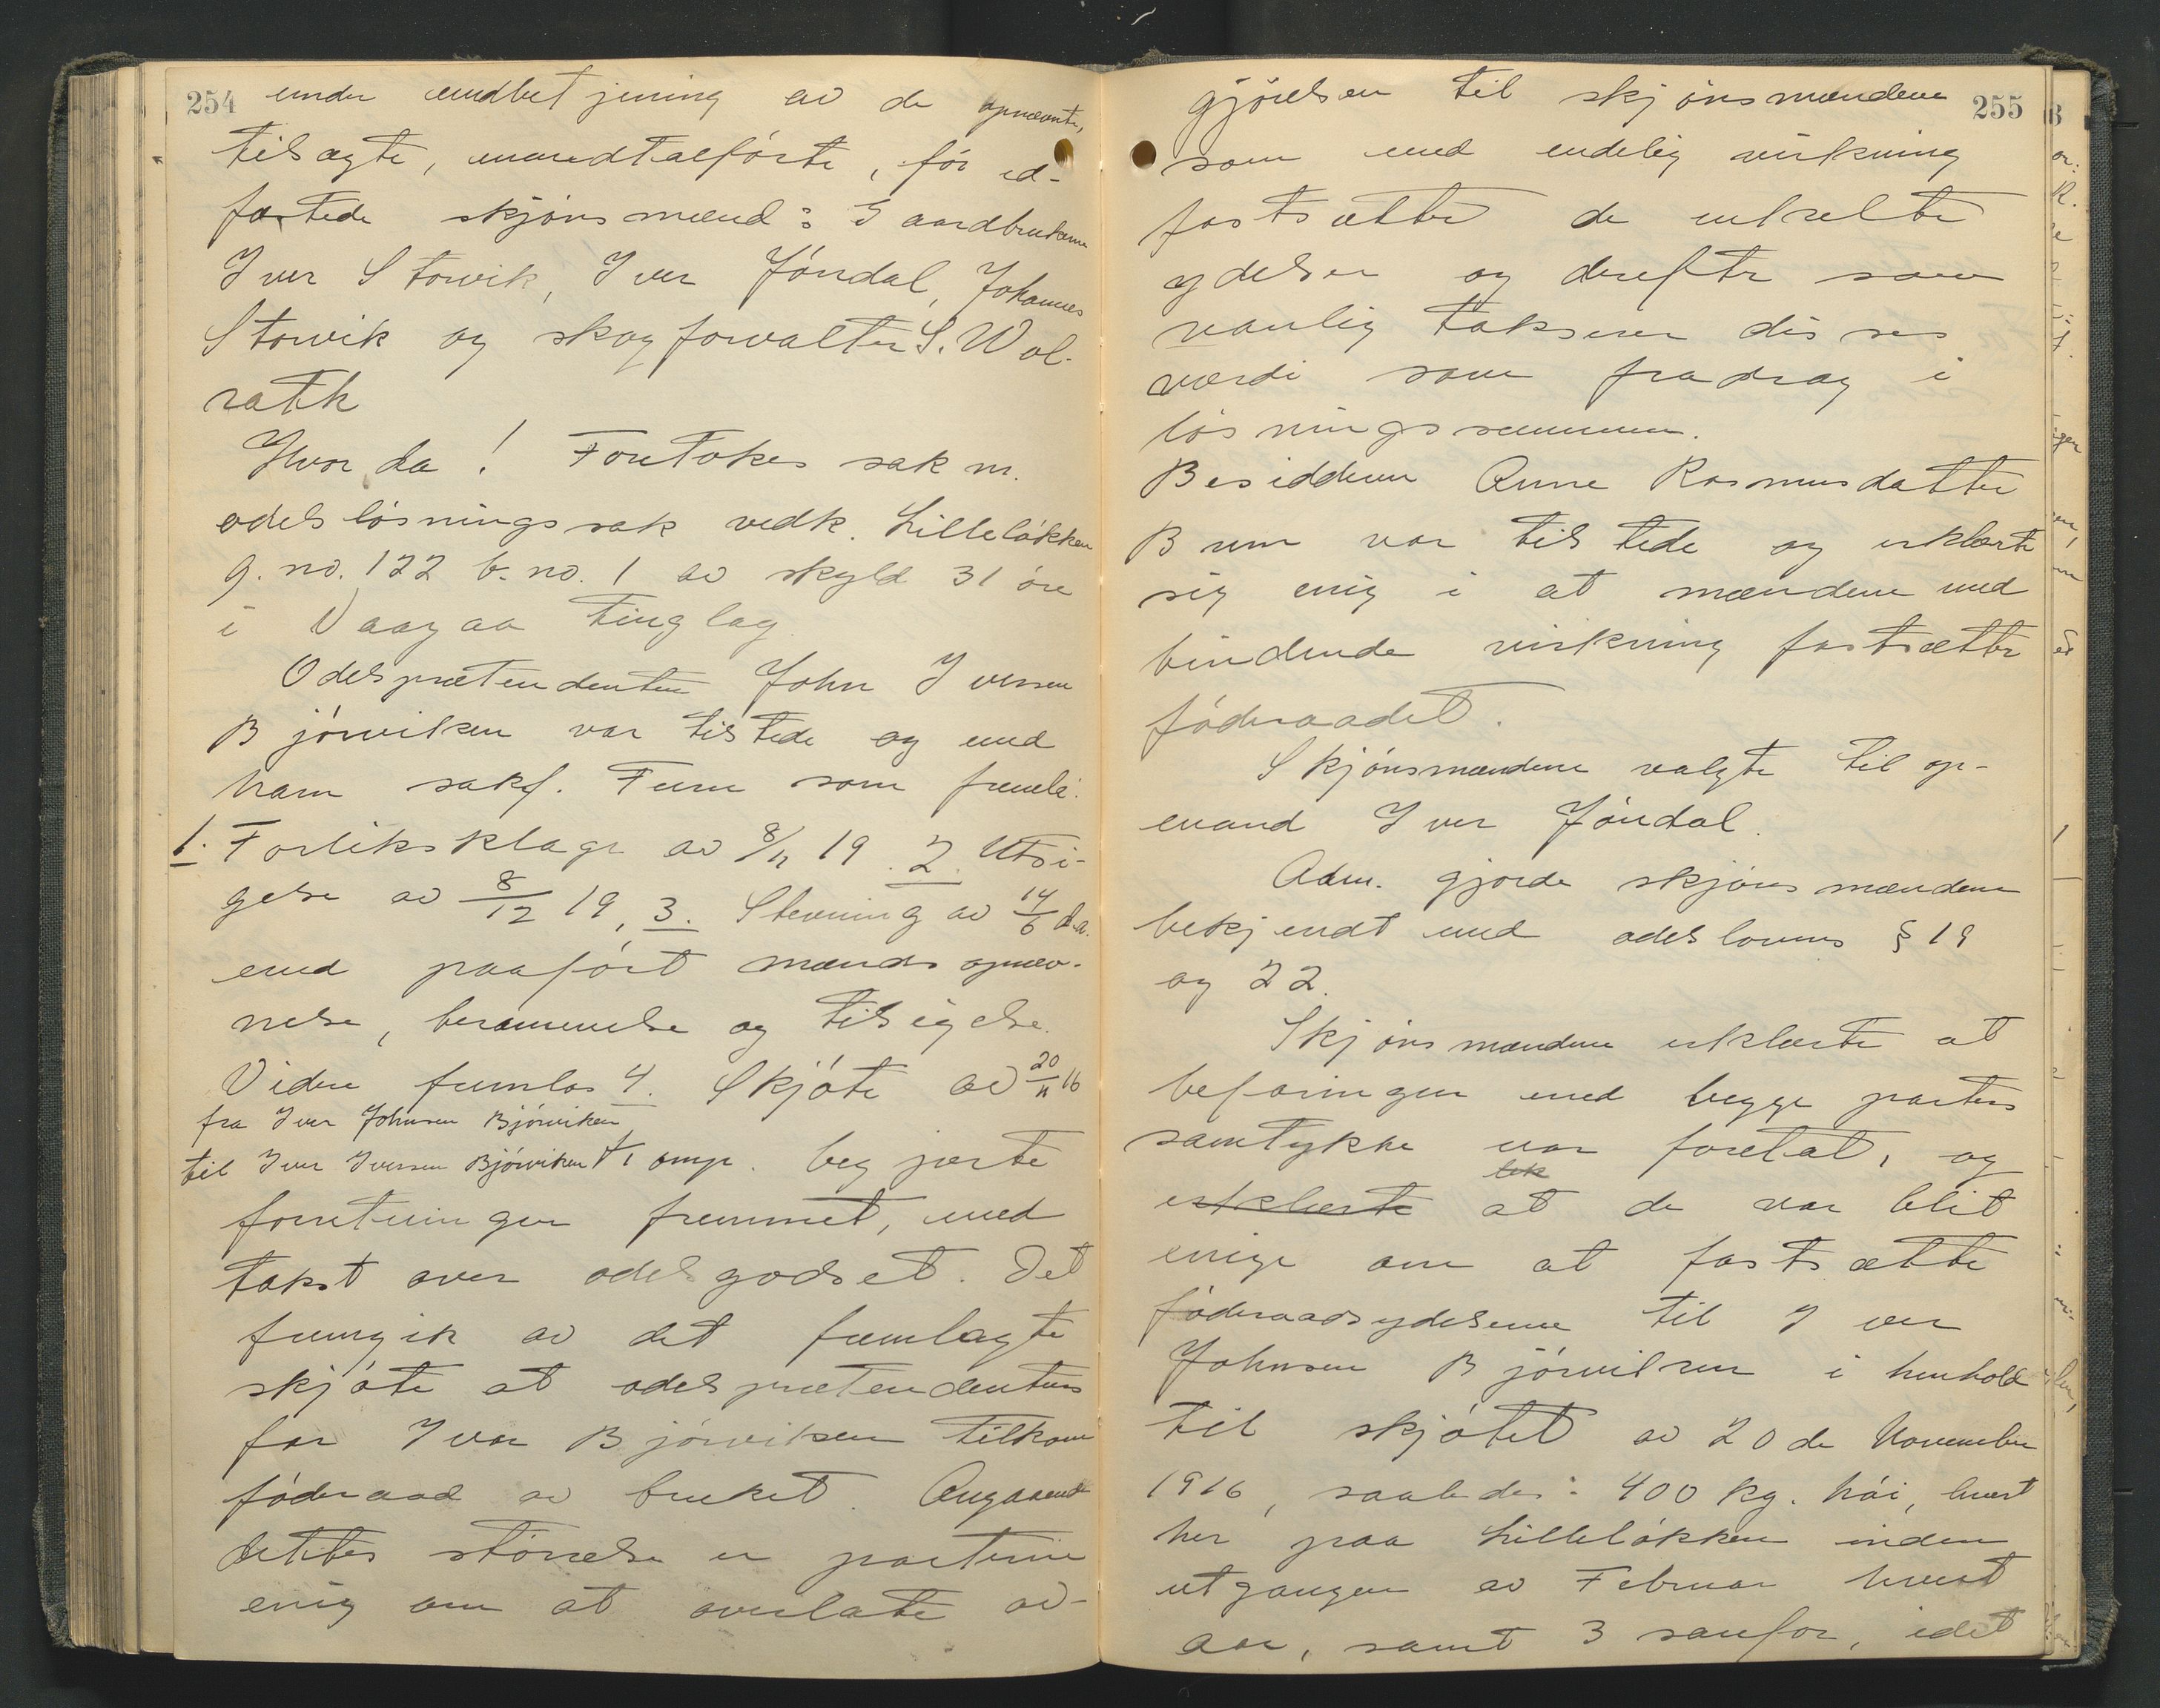 254
under medbetjening av de opnævnte,
tilsagte, mandtalførte, før ed-
fæstede skjønsmænd: Gaardbrukerne
Iver Storvik, Iver Jøndal, Johannes
Storvik og skogforvalter S. Wol-
rath
Hvorda! Foretokes sak nr.
odelsløsningssak vedk. Lilleløkken
g. no. 122 b. no. 1 av skyld 31 øre
i Vaagaa tinglag
Odelsprætendenten John Iversen
Bjørviken var tilstede og med
ham sakf. Furu som fremla:
1. Forliksklage av 8/11 19. 2. Utsi-
gelse av 8/12 19, 3. Stevning av 14/6 d.a.
med paaført mænds opnæv-
nelse, berammelse og tilsigelse.
Videre fremlas 4. Skjøte av 20/11 16
fra Iver Johnsen Bjørviken
til Iver Iversen Bjørviken og begjærte
forretningen fremmet, med
takst over odelsgodset. Det
fremgik av det fremlagte
skjøte at odelsprætendentens
far Iver Bjørviken tilkom
føderaad av bruket. Angaaende
dettes størrelse er parterne
enig om at overlate av-
255
gjørelsen til skjønsmændene
som med endelig virkning
fastsætter de enkelte
ydelser og derefter som
vanlig takserer disses
værdi som fradrag i
løsningssummen.
Besidderen Anne Rasmusdatter
Brun var tilstede og erklærte
sig enig i at mændene med
bindende virkning fastsætter
føderaadet.
Skjønsmændene valgte til op-
mand Iver Jøndal.
Adm. gjorde skjønsmændene
bekjendt med odelslovens § 19
og 22.
Skjønsmændene erklærte at
befaringen med begge parters
samtykke var foretat, og
erklærte at de var blit
enige om at fastsætte
føderaadsydelserne til Iver
Johnsen Bjørviken i henhold
til skjøtet av 20de November
1916, saaledes: 400 kg. høi, levert
her paa Lilleløkken inden
utgangen av Februar hvert
aar, samt 3 sauefor, idet